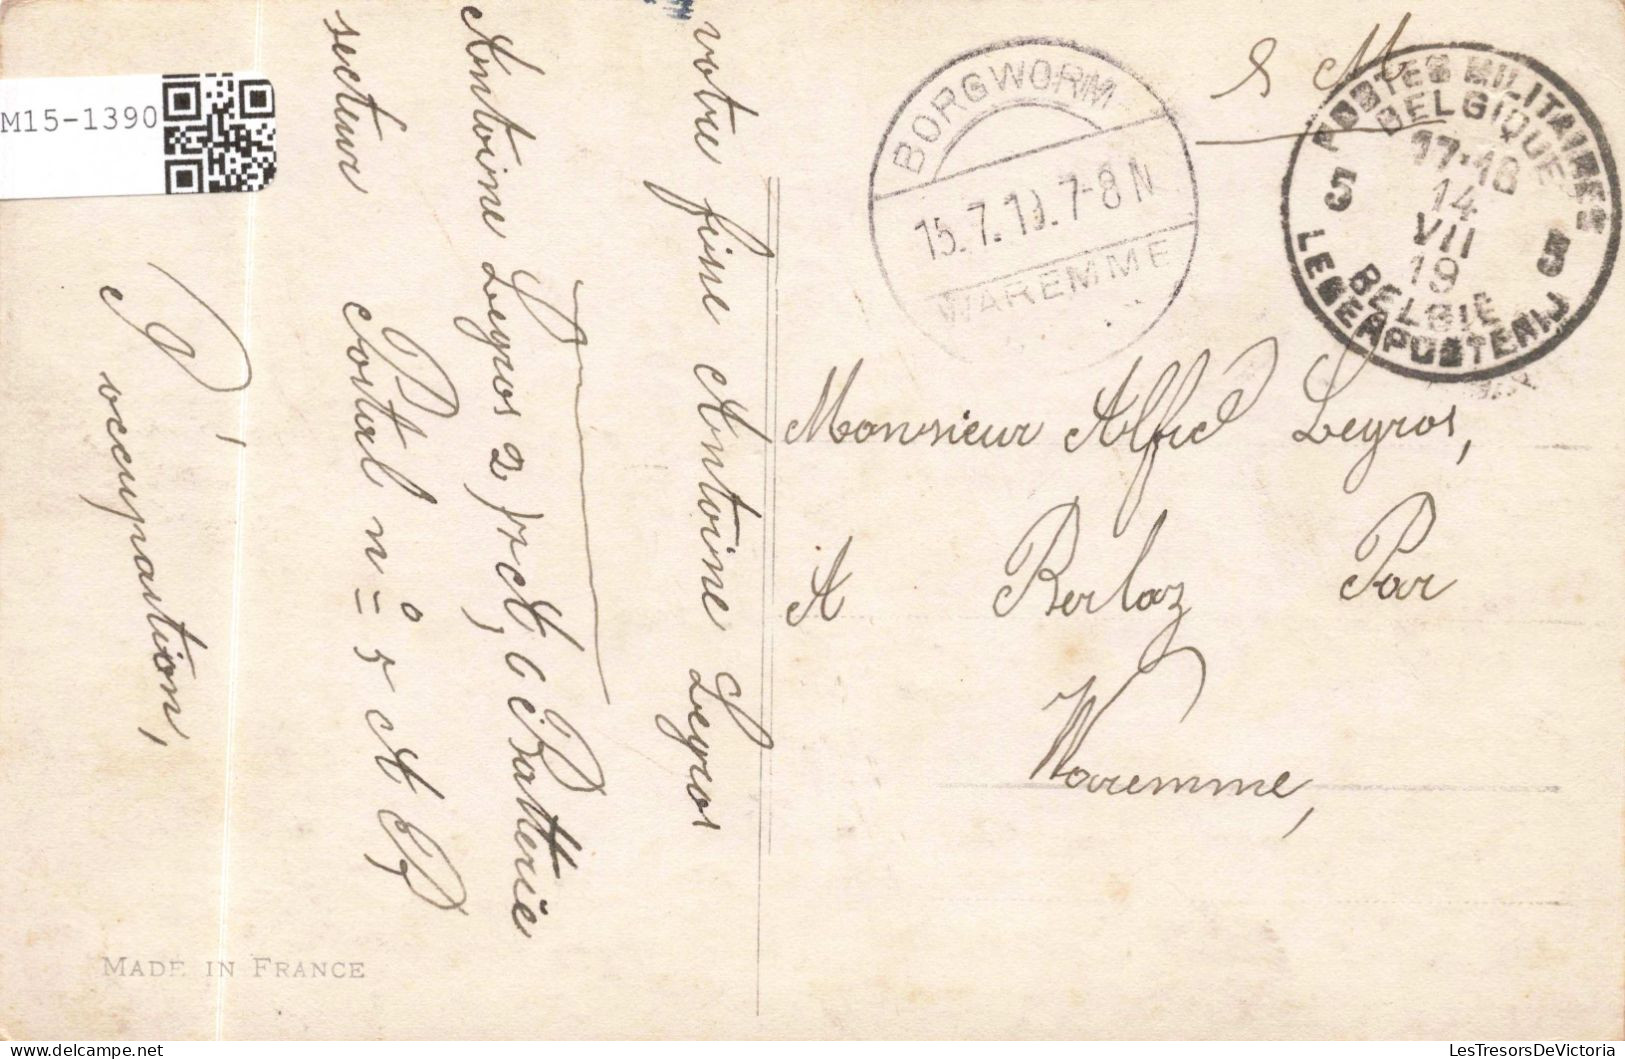 M15-1390
votre fine Antoine Legros
Antoine Legros 2/17 A, 6 Batterie
secteur Postal n° 5 A P
D'occupation,
MADE IN FRANCE
S M
BORGWORM
15.7.19.7-8 N
WAREMME
POSTES MILITAIRES
BELGIQUE
17-18
14
VII
19
5 5
BELGIE
LEGERPOSTERIJ
Monsieur Alfred Legros,
A Berloz Par
Waremme,
LesTresorsDeVictoria